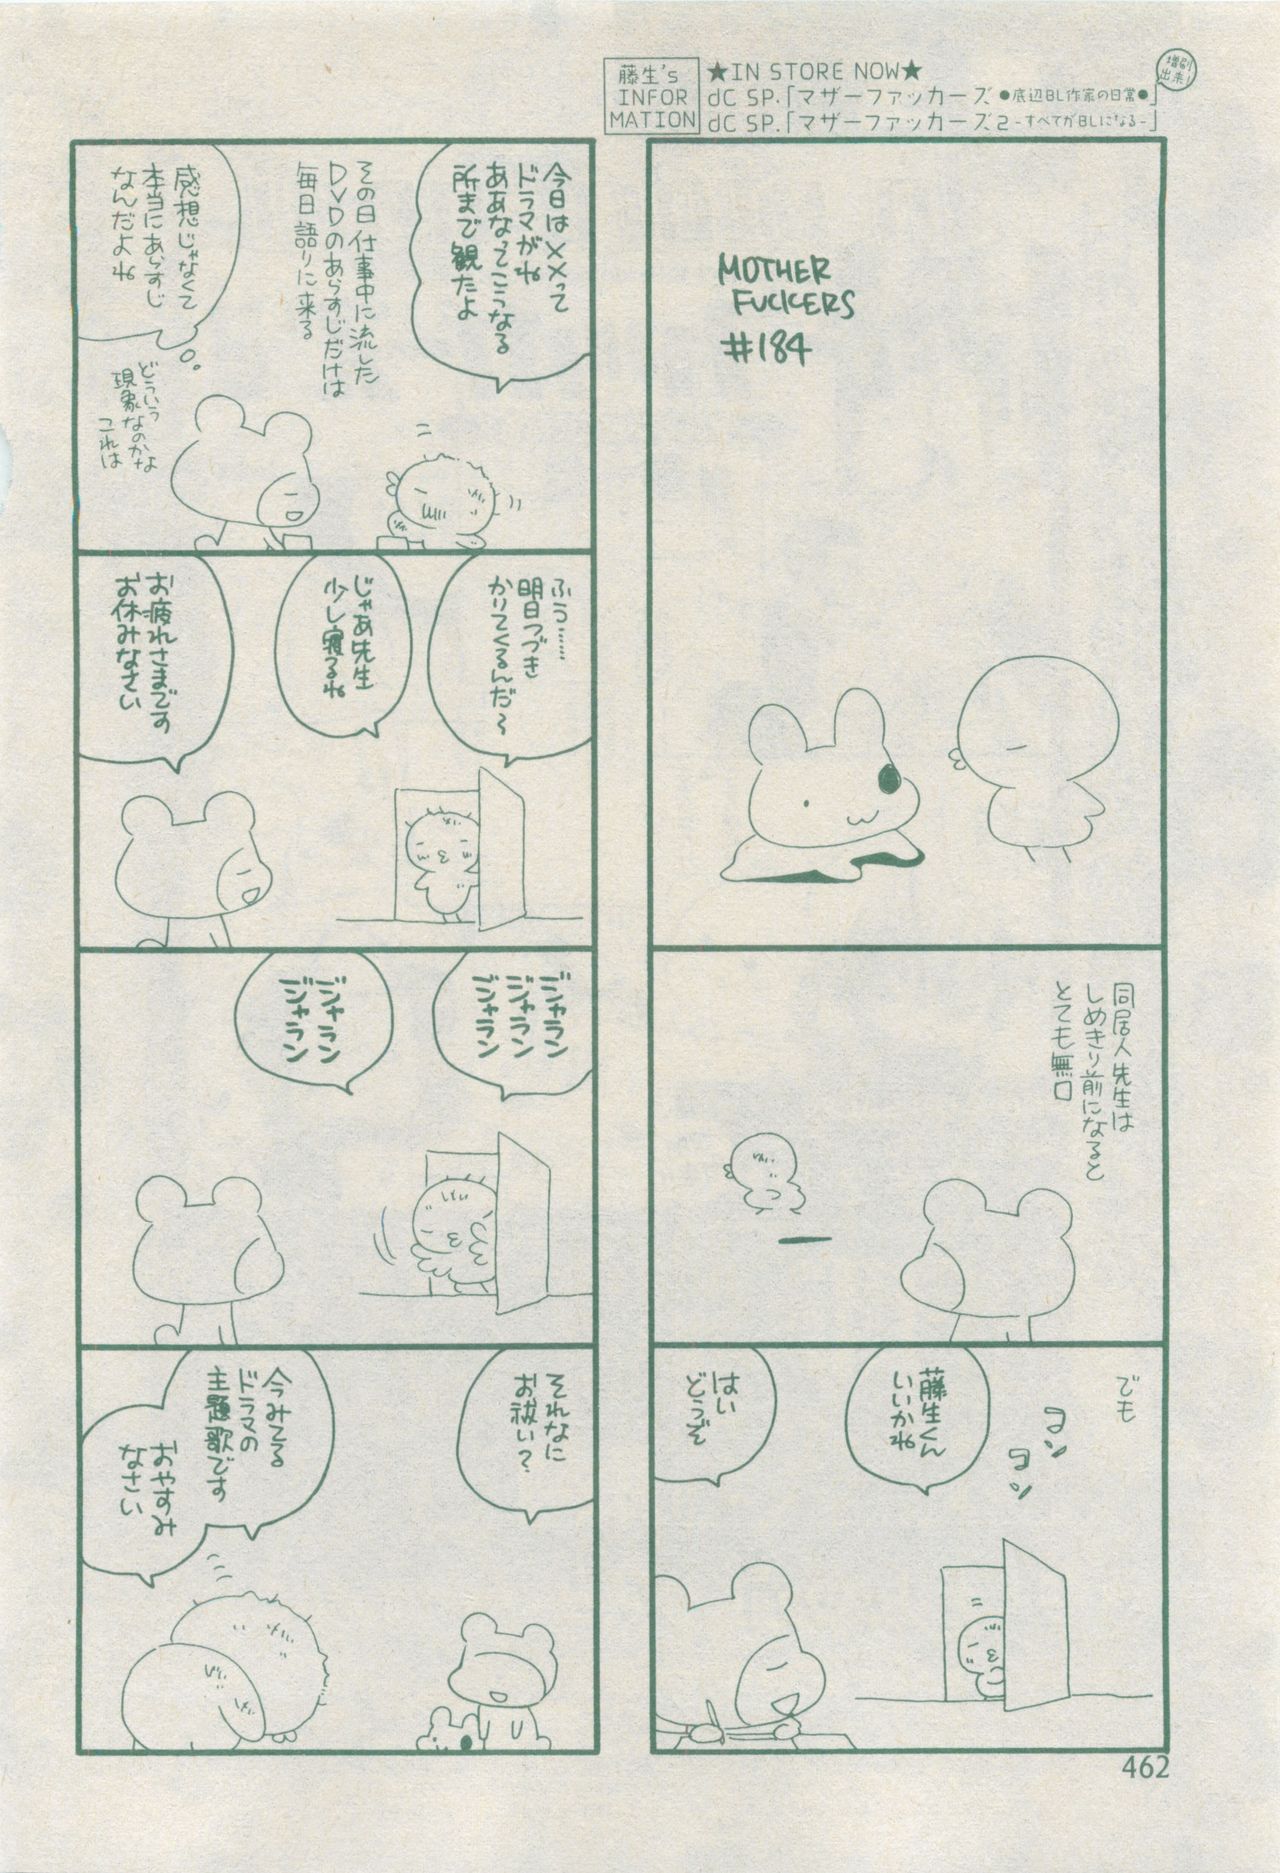 藤生's
INFOR
MATION
★IN STORE NOW★
dC SP.「マザーファッカーズ●底辺BL作家の日常●」
増刷
出来!
dC SP.「マザーファッカーズ2-すべてがBLになる-」
MOTHER
FUCKERS
#184
同居人先生は
しめきり前になると
とても無口
でも
コン
コン
藤生くん
いいかね
はい
どうぞ
今日は××って
ドラマがね
ああなってこうなる
所まで観たよ
その日仕事中に流した
DVDのあらすじだけは
毎日語りに来る
感想じゃなくて
本当にあらすじ
なんだよね
どういう
現象なのかな
これは
ふう……
明日つづき
かりてくるんだ〜
じゃあ先生
少し寝るね
お疲れさまです
お休みなさい
ジャラン
ジャラン
ジャラン
ジャラン
ジャラン
それなに
お祓い?
今みてる
ドラマの
主題歌です
おやすみ
なさい
462